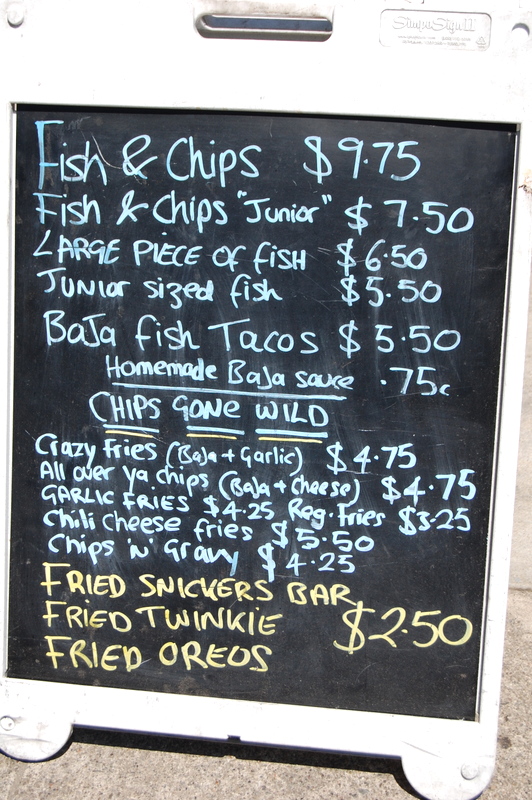 SimpoSign II
Fish & Chips $9.75
Fish & Chips "Junior" $7.50
LARGE PIECE OF fiSH $6.50
Junior sized fish $5.50
BaJa fish Tacos $5.50
Homemade BaJa sauce .75c
CHIPS GONE WILD
Crazy fries (BaJa + Garlic) $4.75
All over ya chips (BaJa + cheese) $4.75
GARLIC FRIES $4.25 Reg. Fries $3.25
Chili cheese fries $5.50
Chips 'n' Gravy $4.25
FRIED SNICKERS BAR
FRIED TWINKIE $2.50
FRIED OREOS